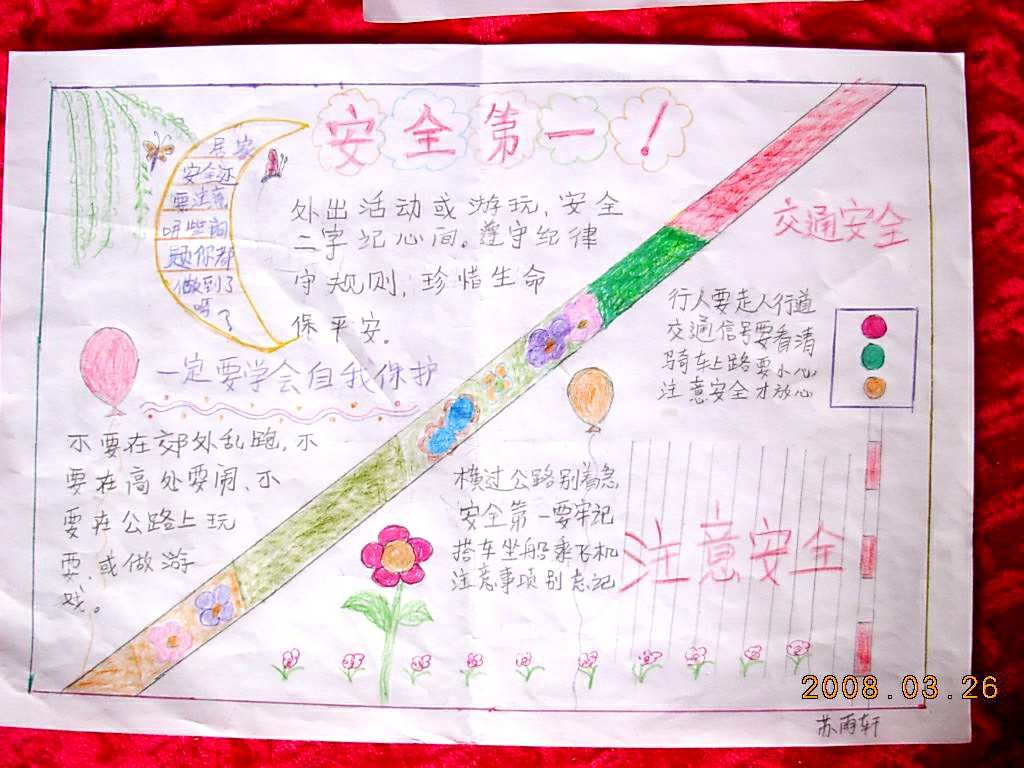 安全第一！
居家
安全还
要注意
哪些问
题你都
做到了
吗了
外出活动或游玩，安全
二字记心间。遵守纪律
守规则，珍惜生命
保平安。
一定要学会自我保护
不要在郊外乱跑，不
要在高处耍闹、不
要在公路上玩
耍、或做游
戏。
交通安全
行人要走人行道
交通信号要看清
骑车上路要小心
注意安全才放心
横过公路别着急
安全第一要牢记
搭车坐船乘飞机
注意事项别忘记
注意安全
2008.03.26
苏雨轩